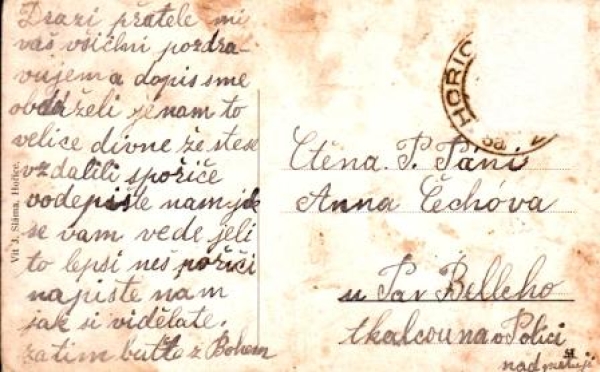 Drazí přátele mi
vás všichni pozdra-
vujem a dopis sme
obdrželi je nam to
velice divne že ste se
vzdalili spořiče
vodepište nam jak
se vam vede jeli
to lepsi neš pořiči
napište nam
jak si vidělate.
zatim buťte z Bohem
Vít J. Sláma, Hořice.
HOŘIC
Ctěna. P. Paní
Anna Čechóva
u Pav Belleho
tkalcouna v Polici
nad metují